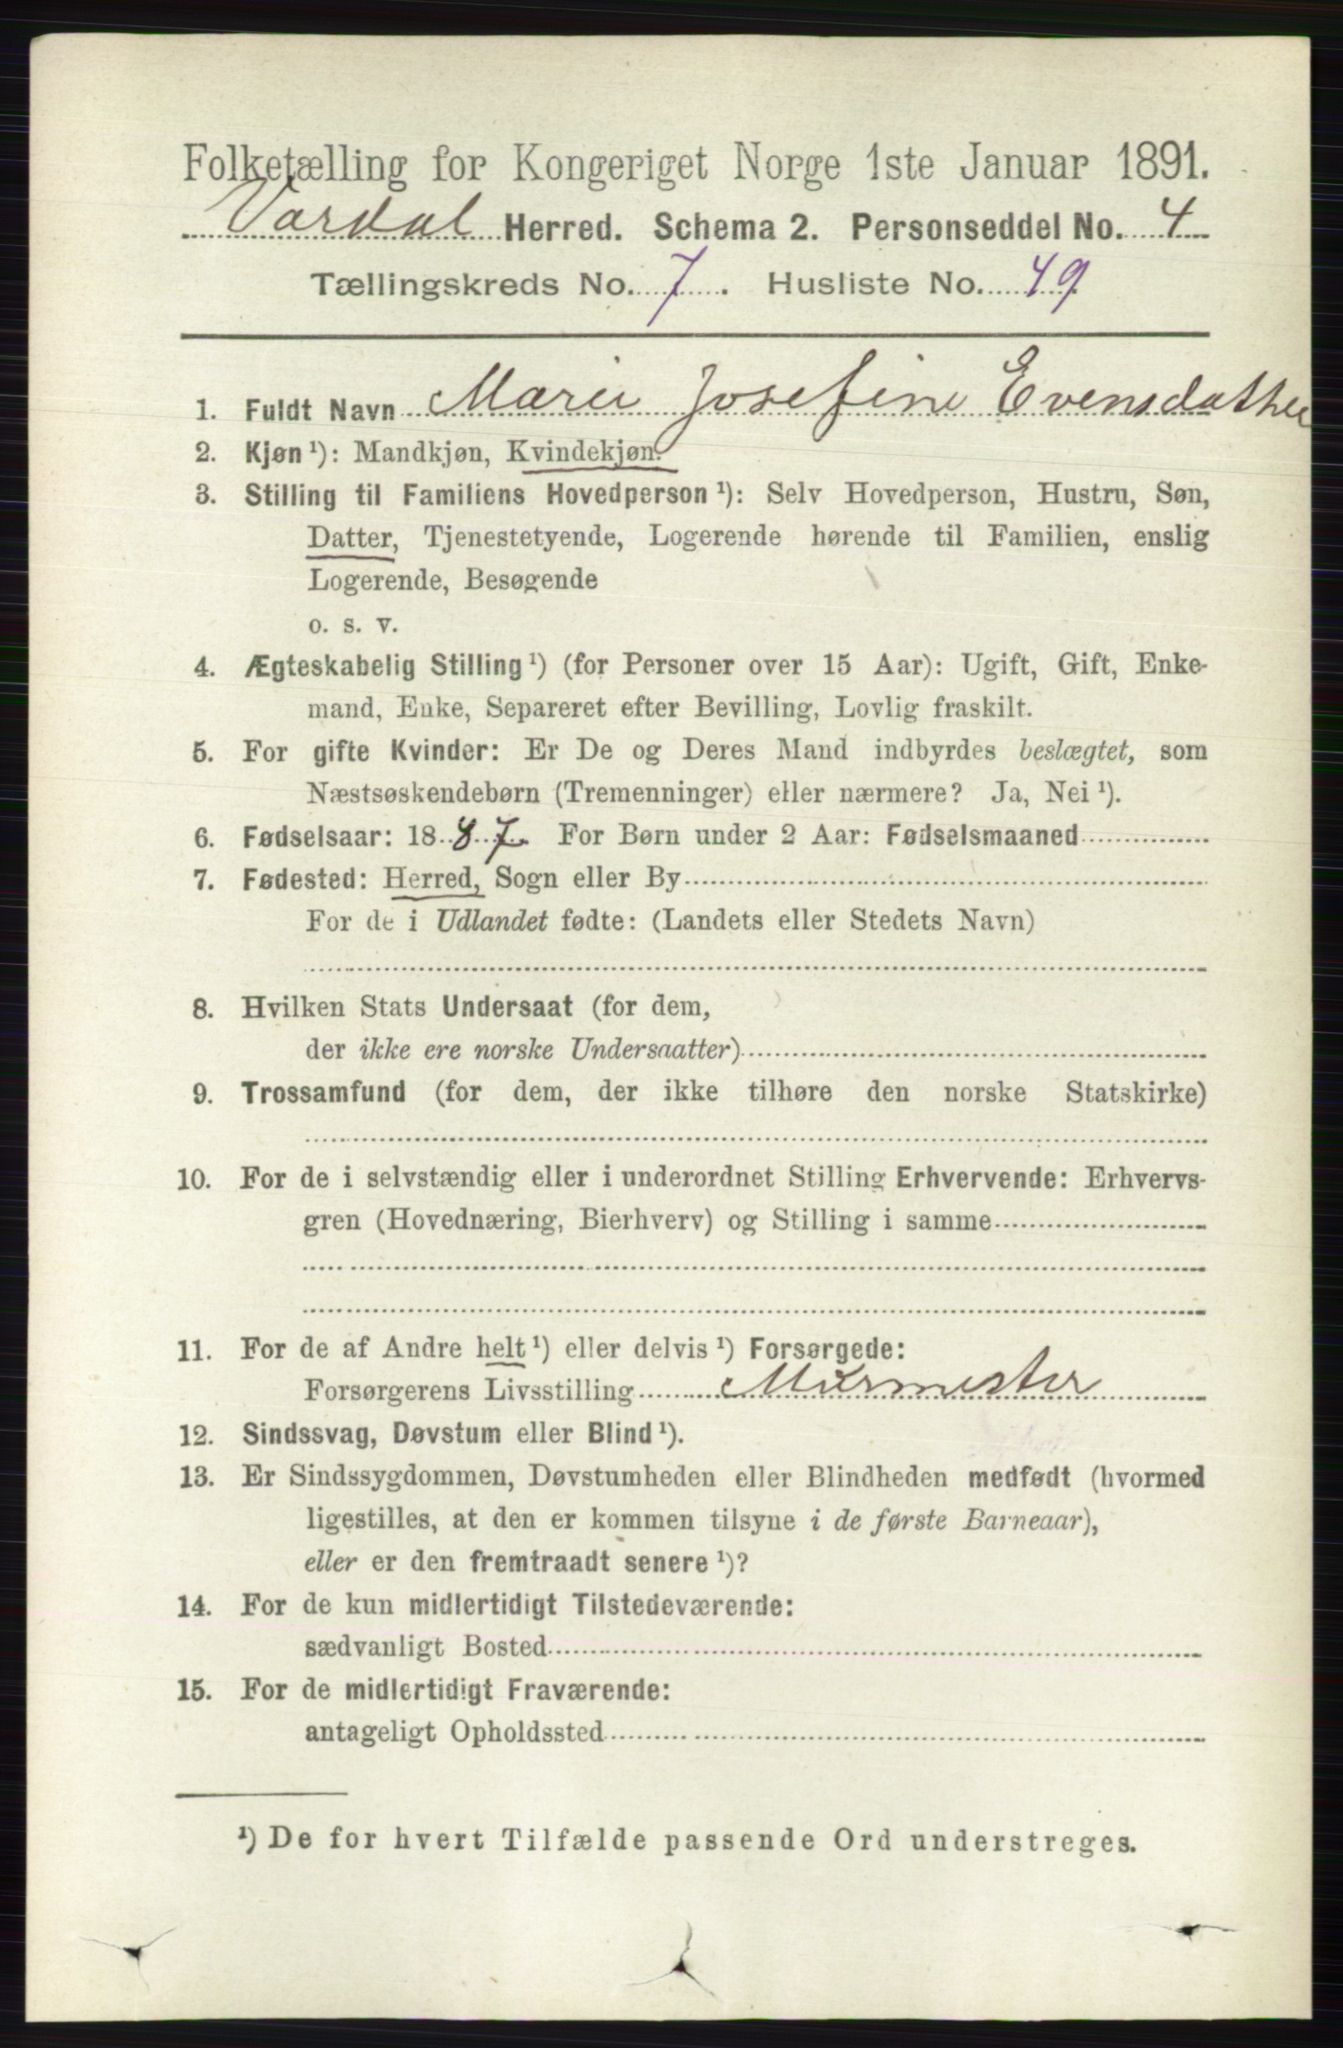 Folketælling for Kongeriget Norge 1ste Januar 1891.
Vardal Herred. Schema 2. Personseddel No. 4
Tællingskreds No. 7. Husliste No. 49
1. Fuldt Navn Marie Josefine Evensdatter
2. Kjøn ¹): Mandkjøn, Kvindekjøn.
3. Stilling til Familiens Hovedperson ¹): Selv Hovedperson, Hustru, Søn,
Datter, Tjenestetyende, Logerende hørende til Familien, enslig
Logerende, Besøgende
o. s. v.
4. Ægteskabelig Stilling ¹) (for Personer over 15 Aar): Ugift, Gift, Enke-
mand, Enke, Separeret efter Bevilling, Lovlig fraskilt.
5. For gifte Kvinder: Er De og Deres Mand indbyrdes beslægtet, som
Næstsøskendebørn (Tremenninger) eller nærmere? Ja, Nei ¹).
6. Fødselsaar: 1887. For Børn under 2 Aar: Fødselsmaaned
7. Fødested: Herred, Sogn eller By
For de i Udlandet fødte: (Landets eller Stedets Navn)
8. Hvilken Stats Undersaat (for dem,
der ikke ere norske Undersaatter)
9. Trossamfund (for dem, der ikke tilhøre den norske Statskirke)
10. For de i selvstændig eller i underordnet Stilling Erhvervende: Erhvervs-
gren (Hovednæring, Bierhverv) og Stilling i samme
11. For de af Andre helt ¹) eller delvis ¹) Forsørgede:
Forsørgerens Livsstilling Murmester
12. Sindssvag, Døvstum eller Blind ¹).
13. Er Sindssygdommen, Døvstumheden eller Blindheden medfødt (hvormed
ligestilles, at den er kommen tilsyne i de første Barneaar),
eller er den fremtraadt senere ¹)?
14. For de kun midlertidigt Tilstedeværende:
sædvanligt Bosted
15. For de midlertidigt Fraværende:
antageligt Opholdssted
¹) De for hvert Tilfælde passende Ord understreges.